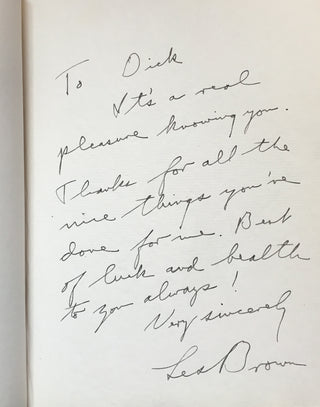 To Dick
It's a real
pleasure knowing you.
Thanks for all the
nice things you've
done for me. Best
of luck and health
to you always!
Very sincerely
Les Brown